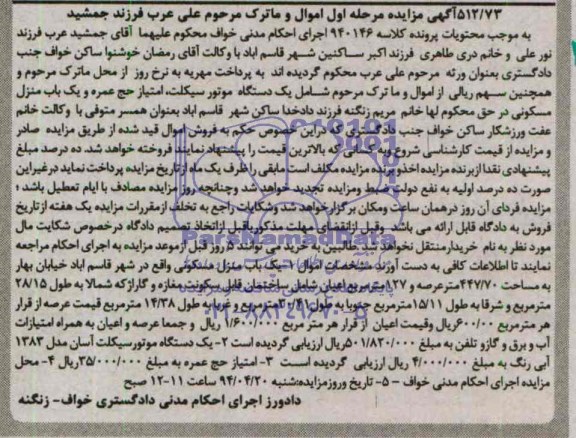 ۵۱۲/۷۳آگهی مزایده مرحله اول اموال و ماترک مرحوم علی عرب فرزند جمشید
به موجب محتویات پرونده کلاسه ۹۴۰۱۴۶ اجرای احکام مدنی خواف محکوم علیهما آقای جمشید عرب فرزند
نور علی و خانم دری طاهری فرزند اکبر ساکنین شهر قاسم اباد با وکالت آقای رمضان خوشنوا ساکن خواف جنب
دادگستری بعنوان ورثه مرحوم علی عرب محکوم گردیده اند به پرداخت مهریه به نرخ روز از محل ماترک مرحوم و
همچنین سهم ریالی از اموال و ما ترک مرحوم شامل یک دستگاه موتور سیکلت، امتیاز حج عمره و یک باب منزل
مسکونی در حق محکوم لها خانم مریم زنگنه فرزند دادخدا ساکن شهر قاسم اباد بعنوان همسر متوفی با وکالت خانم
عفت ورزشکار ساکن خواف جنب دادگستری که دراین خصوص حکم به فروش اموال قید شده از طریق مزایده صادر
و مزایده از قیمت کارشناسی شروع و به کسانی که بالاترین قیمت را پیشنهاد نمایند فروخته خواهد شد. ده درصد مبلغ
پیشنهادی نقدا ازبرنده مزایده اخذو برنده مزایده مکلف است مابقی را ظرف یک ماه از تاریخ مزایده پرداخت نماید درغیراین
صورت ده درصد اولیه به نفع دولت ضبط ومزایده تجدید خواهد شد وچنانچه روز مزایده مصادف با ایام تعطیل باشد ؛
مزایده فردای آن روز درهمان ساعت ومکان برگزار خواهد شد وشکایات راجع به تخلف ازمقررات مزایده یک هفته از تاریخ
فروش به دادگاه قابل ارائه می باشد وقبل ازانقضای مهلت مذکور یاقبل ازاتخاذ تصمیم دادگاه درخصوص شکایت مال
مورد نظر به نام خریدار منتقل نخواهد شد. طالبین به خرید می توانند ده روز قبل ازموعد مزایده به اجرای احکام مراجعه
نمایند تا اطلاعات کافی به دست آورند مشخصات اموال ۱-یک باب منزل مسکونی واقع در شهر قاسم اباد خیابان بهار
به مساحت ۴۴۷/۷۰مترعرصه و ۱۲۷مترمربع اعیان شامل ساختمان قابل سکونت، مغازه و گاراژ که شمالا به طول ۲۸/۱۵
مترمربع و شرقا به طول ۱۵/۱۱مترمربع جنوبا به طول مترمربع و غربا به طول ۱۴/۳۸ مترمربع قیمت عرصه از قرار
هر مترمربع ریال وقیمت اعیان از قرار هر متر مربع ۱/۶۰۰/۰۰۰ ریال و جمعا عرصه و اعیان به همراه امتیازات
آب و برق و گازو تلفن به مبلغ ۵۰۱/۸۲۰/۰۰۰ریال ارزیابی گردیده است ۲- یک دستگاه موتورسیکلت آسان مدل ۱۳۸۳
آبی رنگ به مبلغ ۴/۰۰۰/۰۰۰ ریال ارزیابی گردیده است ۳- امتیاز حج عمره به مبلغ ۳۵/۰۰۰/۰۰۰ریال ۴- محل
مزایده اجرای احکام مدنی خواف - ۵- تاریخ وروزمزایده:شنبه ۹۴/۰۴/۲۰ ساعت ۱۱-۱۲ صبح
دادورز اجرای احکام مدنی دادگستری خواف- زنگنه